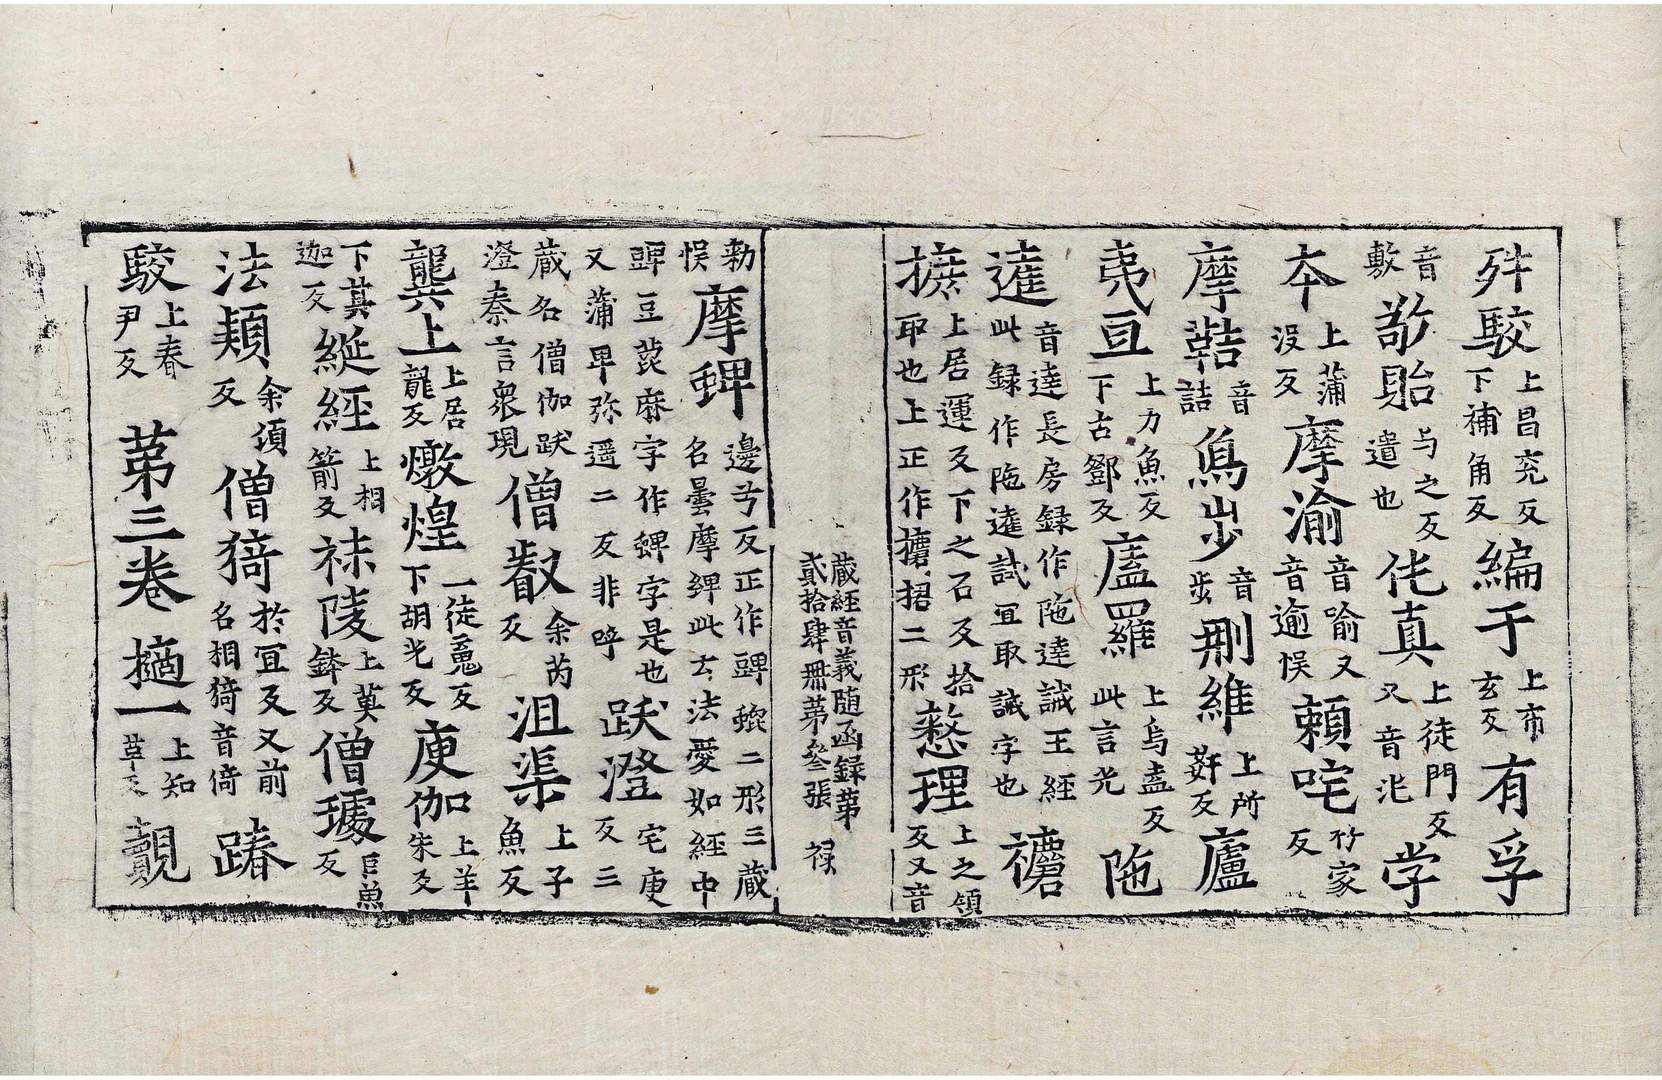 舛駮上昌兖反下補角反編于上布玄反有孚
音敷㔟貽与之反遣也侂真上徒門反又音沌学
本上蒲没反摩渝音喻又音逾悮賴咤竹家反
摩鞊音詰鳥步音步刪維上所姧反蘆
羐亘上力魚反下古鄧反廅羅上烏盍反此言光陁
逹音逹長房録作陁逹誡王經此録作陁逹試冝取誡字也𥜒
攈上居運反下之石反拾取也上正作攟捃二形整理上之領反又音
藏經音義随函録苐貳拾肆冊苐叄張 禄
勑悮摩蜱邊兮反正作𧓎螕二形三藏名曇摩蜱此云法愛如經中
𧓎豆萞麻字作蜱字是也又蒲卑弥遥二反非呼䟦澄宅庚反三
藏名僧伽䟦澄秦言衆現僧叡余芮反沮渠上子魚反
龔上上居龍反燉煌一徒寬反下胡光反庾伽上羊朱反
下其迦反綖經上相箭反祑陵上莫鉢反僧璩巨魚反
法頴余頃反僧猗於冝反又前名相猗音倚踳
駮上春尹反苐三卷擿一上知革反覿